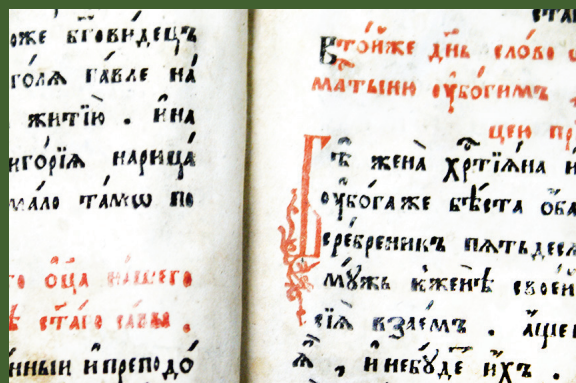 оже бг҃овидецъ
гл҃я га́вле на́
житїю̀ . и҆на
иго́рїѧ нарица́
ма́ло та́мѡ по
ѻц҃а на́шего
ста́го са́ввы .
нныи и҆преподо́
ста
Втойже дн҃ь сло́во
ма́тыню ᲂу҆бо́гимъ
цею пр
ѣ жена̀ хрⷭ҇тїѧ́на и
ᲂу҆бо́га же бѣ́ста ѻ҆ба
сре́бреникъ пѧтьдесѧ
мꙋ́жь к̾женѣ̀ свое́и
сїѧ̀ в̾за́емъ . а҆́ще
ѧ҆̀ , и҆небꙋ́де и҆́хъ .